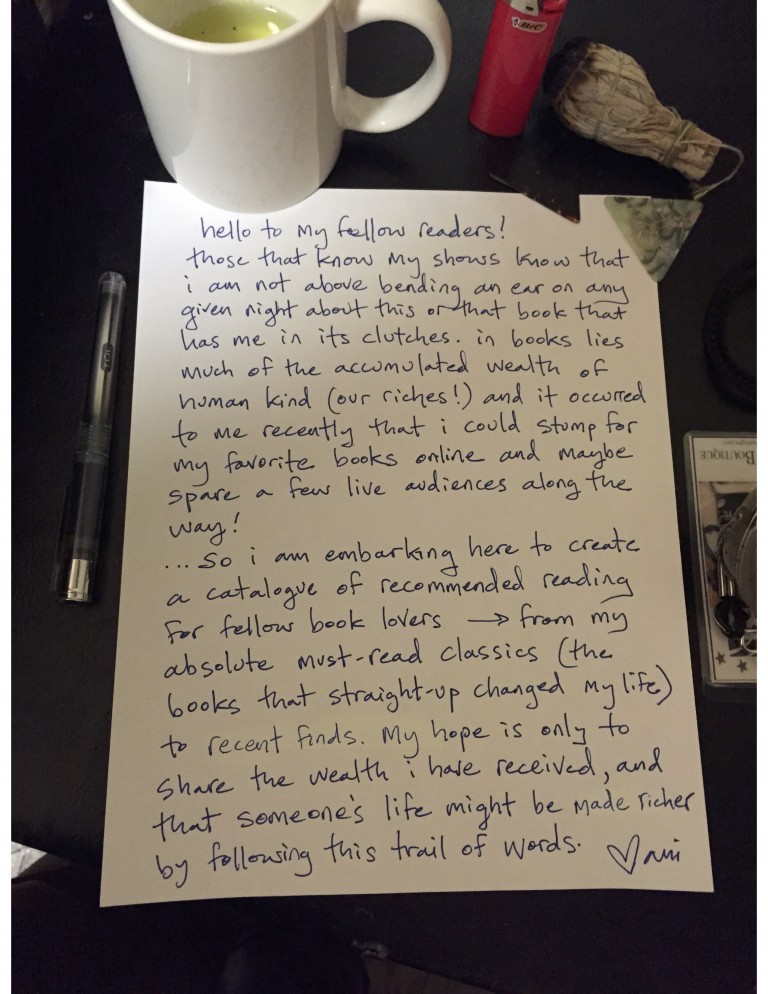 BiC
hello to my fellow readers!
those that know my shows know that
i am not above bending an ear on any
given night about this or that book that
has me in its clutches. in books lies
much of the accumulated wealth of
human kind (our riches!) and it occurred
to me recently that i could stump for
my favorite books online and maybe
spare a few live audiences along the
way!
...so i am embarking here to create
a catalogue of recommended reading
for fellow book lovers → from my
absolute must-read classics (the
books that straight-up changed my life)
to recent finds. my hope is only to
share the wealth i have received, and
that someone's life might be made richer
by following this trail of words. ♡ ani
BOUTIQUE